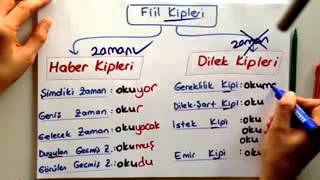 Fiil Kipleri
zamanı
zamanı
Haber Kipleri
Dilek Kipleri
Şimdiki Zaman: okuyor
Geniş Zaman: okur
Gelecek Zaman: okuyacak
Duyulan Geçmiş Z.: okumuş
Görülen Geçmiş Z.: okudu
Gereklilik Kipi: okum
Dilek-Şart Kipi: oku
İstek Kipi: oku
oku
oku
Emir Kipi: oku